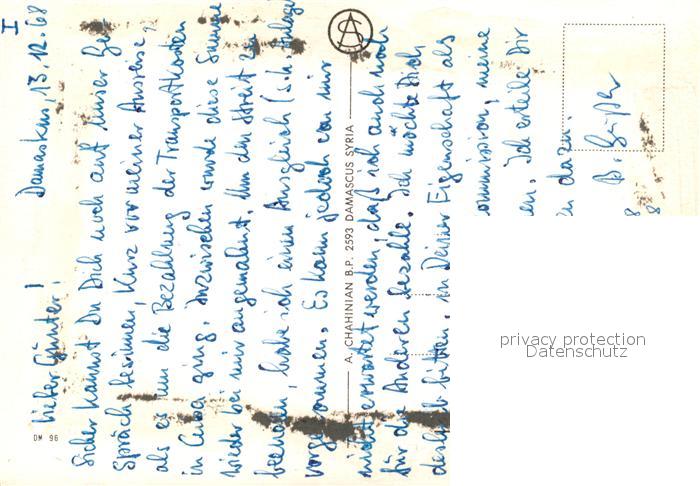 I
Damaskus, 13.12.68
Lieber Günter!
Sicher kannst Du Dich noch auf unser Ge-
spräch besinnen, kurz vor meiner Ausreise,
als es um die Bezahlung der Transportkosten
in Cuba ging. Inzwischen wurde diese Summe
wieder bei mir angemahnt. Um den Streit zu
beenden, habe ich einen Ausgleich (sh. Anlage)
vorgenommen. Es kann jedoch von mir
nicht erwartet werden, daß ich auch noch
für die Anderen bezahle. Ich möchte Dich
deshalb bitten, in Deiner Eigenschaft als
ommission, meine
en. Ich erteile Dir
dazu.
DM 96
A. CHAHINIAN B.P. 2593 DAMASCUS SYRIA
privacy protection
Datenschutz